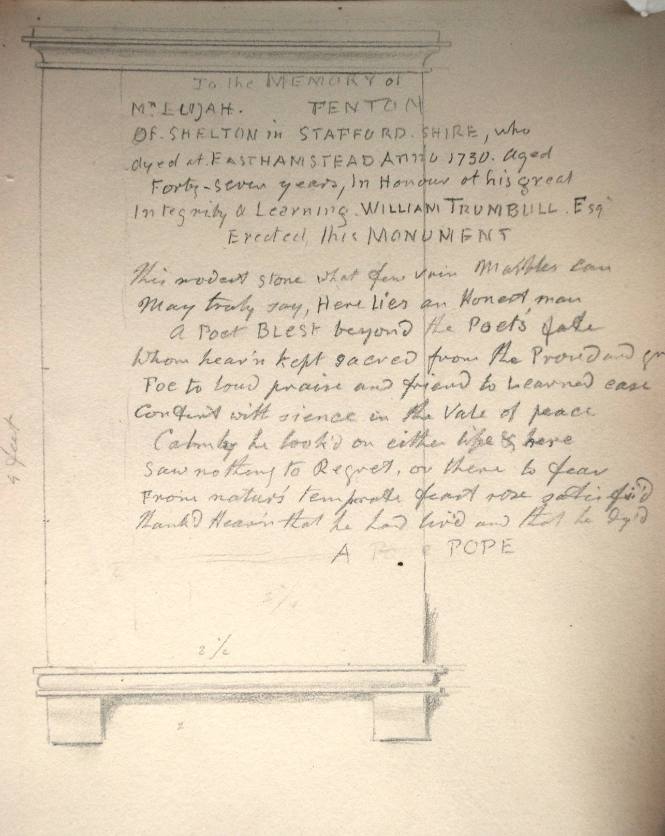 To the MEMORY of
Mr ELIJAH. FENTON
OF. SHELTON in STAFFORD. SHIRE, who
dyed at. EASTHAMSTEAD ANNO 1730. aged
Forty-seven years, In Honour of his great
Integrity & Learning. WILLIAM TRUMBULL. Esqr
Erected this MONUMENT
This modest stone what few vain Marbles can
May truly say, Here Lies an Honest man
A Poet BLESt beyond the Poets fate
Whom heav'n kept sacred from the Proud and gr
Foe to loud praise and friend to Learned ease
Content with sience in the Vale of peace
Calmly he look'd on either life & here
Saw nothing to Regret, or there to fear
From natur's temperate feast rose satisfy'd
thank'd Heav'n that he had liv'd and that he dy'd
A POPE
4 feet
2 1/2
2